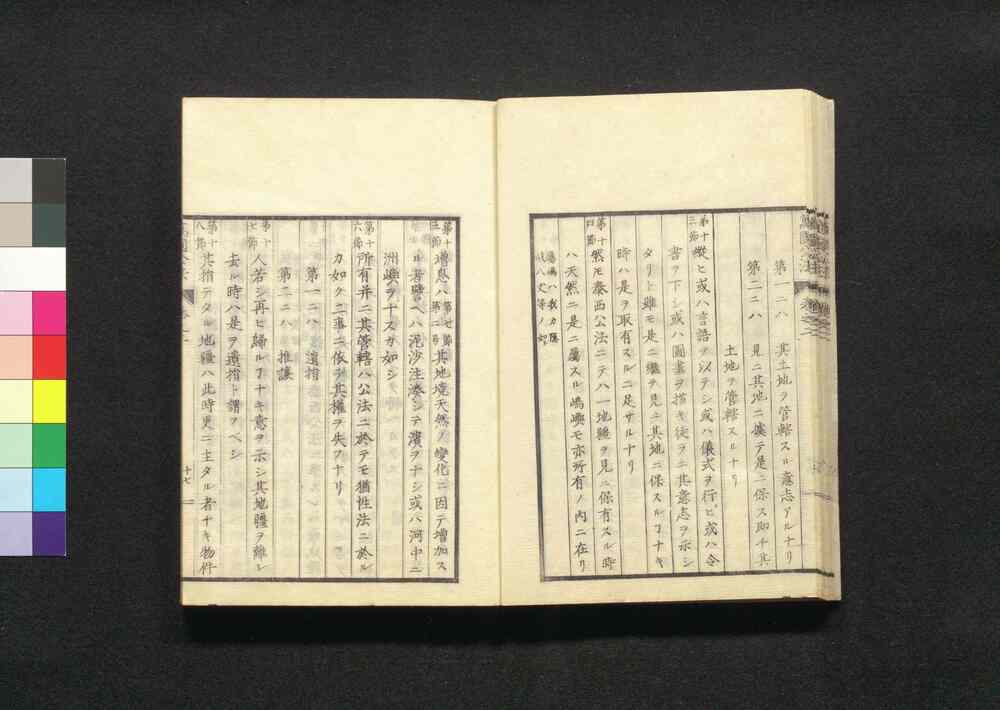 第一ニハ 其土地ヲ管轄スル意志アルナリ
第二ニハ 見ニ其地ニ據テ是ニ保ス即チ其
土地ヲ管轄スルナリ
第十三節 縦ヒ或ハ言語ヲ以テシ或ハ儀式ヲ行ヒ或ハ令
書ヲ下シ或ハ圖畫ヲ描キ徒ラニ其意志ヲ示シ
タリト雖モ是ニ繼テ見ニ其地ニ保スルヿナキ
時ハ是ヲ取有スルニ足サルナリ
第十四節 然モ泰西公法ニテハ一地疆ヲ見ニ保有スル時
ハ天然ニ是ニ属スル嶋嶼モ亦所有ノ内ニ在リ
第十五節 増息ハ 第七節 第二号 其地境天然ノ變化ニ因テ増加ス
ル者譬ヘハ泥沙注湊シテ濱ヲナシ或ハ河中ニ
洲嶼ヲナスカ如シ
第十六節 所有并ニ其管轄ハ公法ニ於テモ猶性法ニ於ル
カ如ク二事ニ依テ其權ヲ失フナリ
第一ニハ 遺捐
第二ニハ 推讓
第十七節 人若シ再ヒ歸ルヿナキ意ヲ示シ其地疆ヲ離レ
去ル時ハ是ヲ遺捐ト謂フベシ
第十八節 其捐テタル地疆ハ此時更ニ主タル者ナキ物件
十七